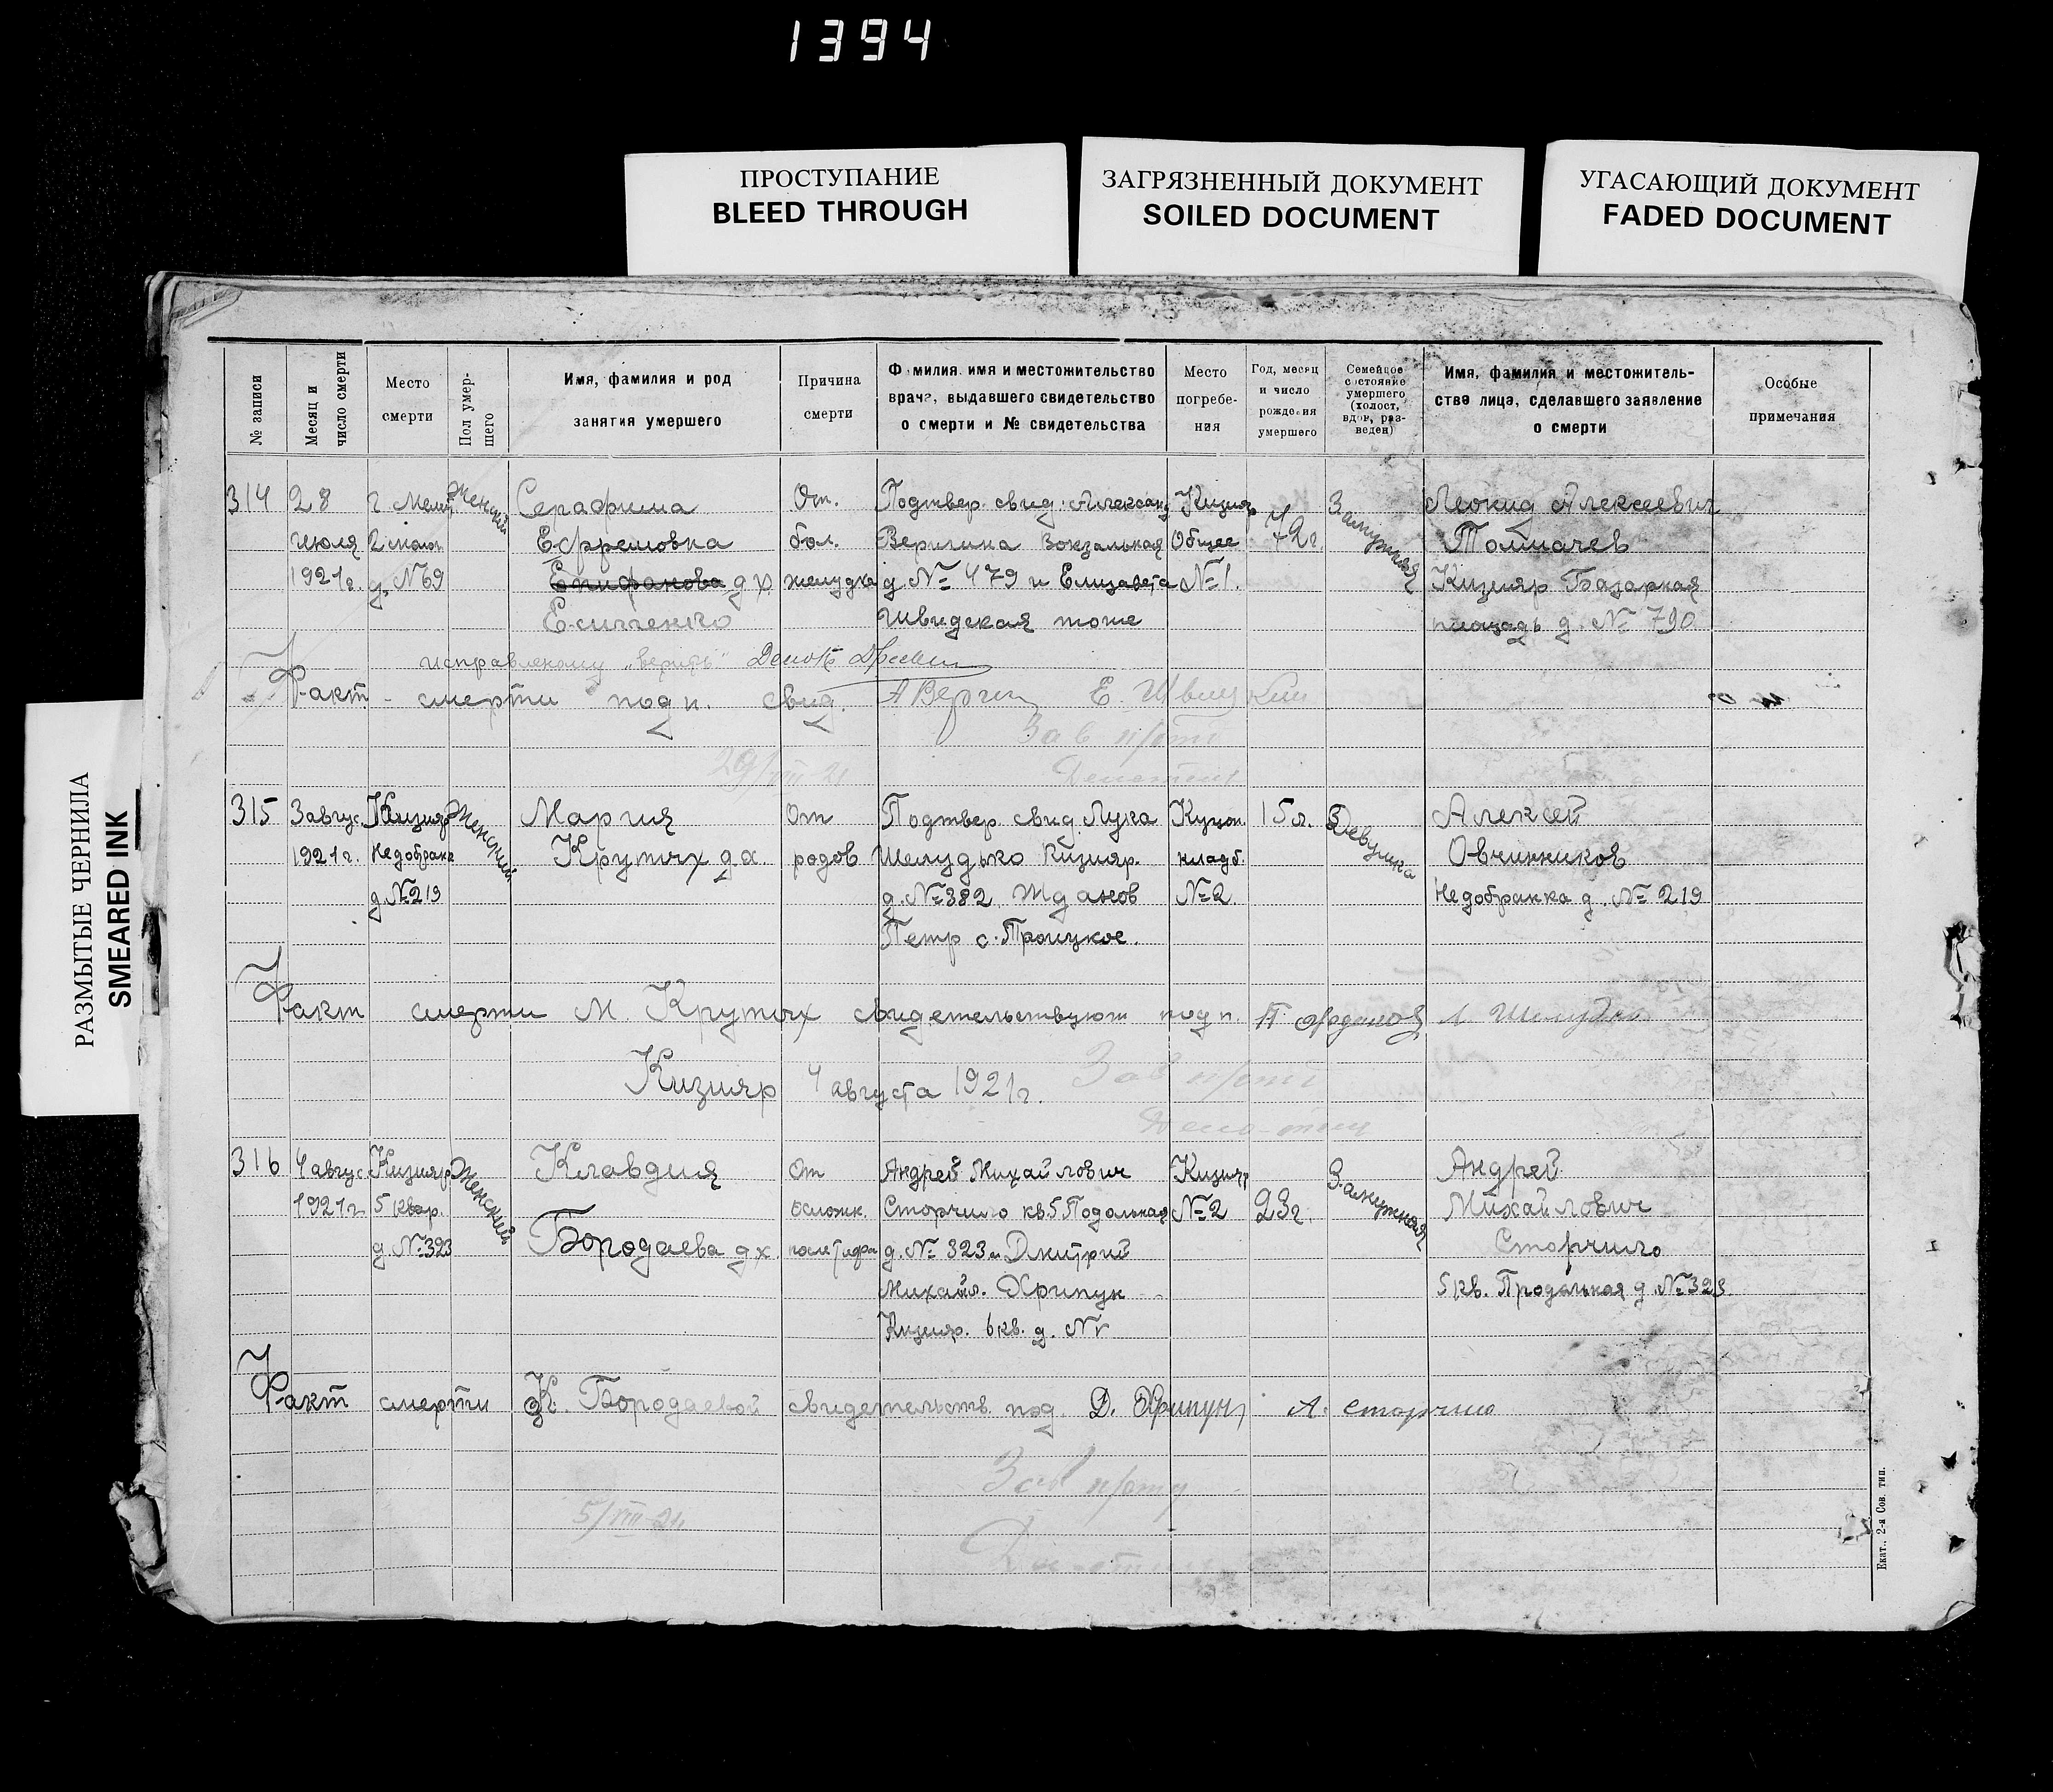 1394
ПРОСТУПАНИЕ
BLEED THROUGH
ЗАГРЯЗНЕННЫЙ ДОКУМЕНТ
SOILED DOCUMENT
УГАСАЮЩИЙ ДОКУМЕНТ
FADED DOCUMENT
РАЗМЫТЫЕ ЧЕРНИЛА
SMEARED INK
№ записи
Месяц и
число смерти
Место
смерти
Пол умер-
шего
Имя, фамилия и род
занятия умершего
Причина
смерти
Фамилия, имя и местожительство
врача, выдавшего свидетельство
о смерти и № свидетельства
Место
погребе-
ния
Год, месяц
и число
рождения
умершего
Семейное
состояние
умершего
(холост,
вдов, раз-
веден)
Имя, фамилия и местожитель-
ство лица, сделавшего заявление
о смерти
Особые
примечания
314
28
июля
1921г.
г. Мелит
д. №69
Женский
Серафима
Ефремовна
Епифанова д х
От.
бол.
желудка
Подтвер. свид. Александ
Веригина Вокзальная
д. № 479 и Елизавета
Швидская тоже
Кизияр
Общее
№1.
42г.
Замужняя
Леонид Алексеевич
Толмачев
Кизияр Базарная
площадь д. № 790
исправленому „верить"
Факт смерти подп. свид. А Вергин Е. Швицкий
29/VIII-21
315
3 авгус
1921г.
Кизияр
Недобранка
д №219
Женский
Мария
Крутых дх.
От
родов
Подтвер. свид. Лука
Шелудько Кизияр.
д. №382 Жданов
Петр с. Троицкое.
кладб.
№2.
15л.
Девушка
Алексей
Овчинников
Недобранка д. № 219
Факт смерти М. Крутых свидетельствуют подп.
Кизияр 4 августа 1921г.
316
4 авгус
1921г
Кизияр
5 квар.
д. №323
Женский
Клавдия
Бородаева дх.
От
осложн.
после тифа
Андрей Михайлович
Сторчило кв.5 Подольная
д. № 323 и Дмитрий
Михайл. Хрипун
Кизияр. 6 кв. д. №
Кизияр
№2
23г.
Замужняя
Андрей
Михайлович
Сторчило
5 кв. Продольная д. №323
Факт смерти К. Бородаевой свидетельств. под. Д. Хрипун А. Сторчило
5/VIII-21
Екат., 2-я Сов. тип.